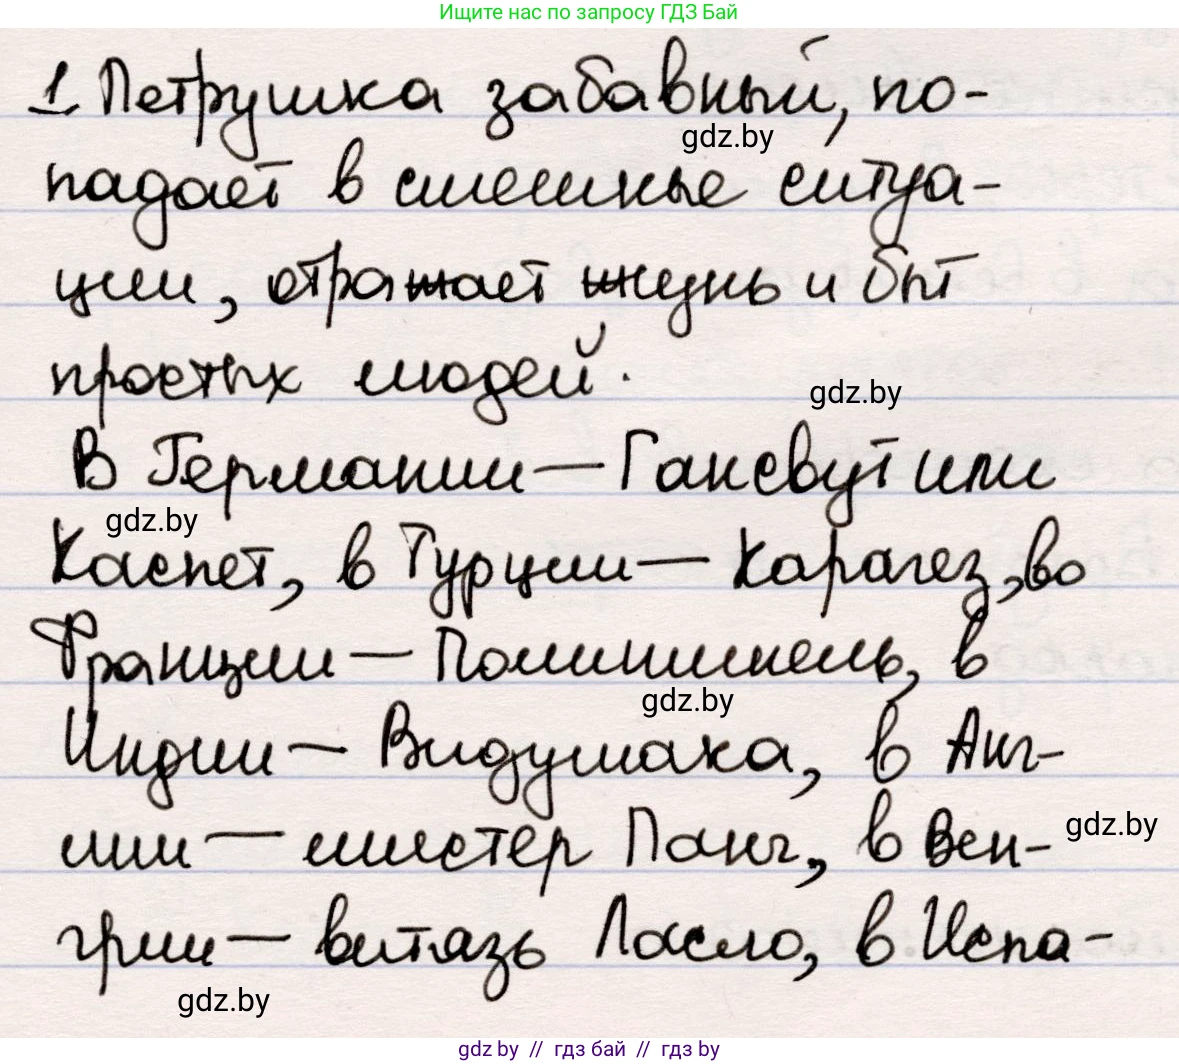 Ищите нас по запросу ГДЗ Бай
1. Петрушка забавный, по-
gdz.by
падает в смешные ситуа-
ции, отражает жизнь и быт
простых людей.
gdz.by
В Германии — Гансвут или
gdz.by
Каспет, в Турции — Карагез, во
Франции — Полишинель, в
gdz.by
Индии — Видушака, в Анг-
лии — мистер Панч, в Вен-
gdz.by
грии — витязь Ласло, в Испа-
gdz.by
gdz by // гдз бай // gdz by